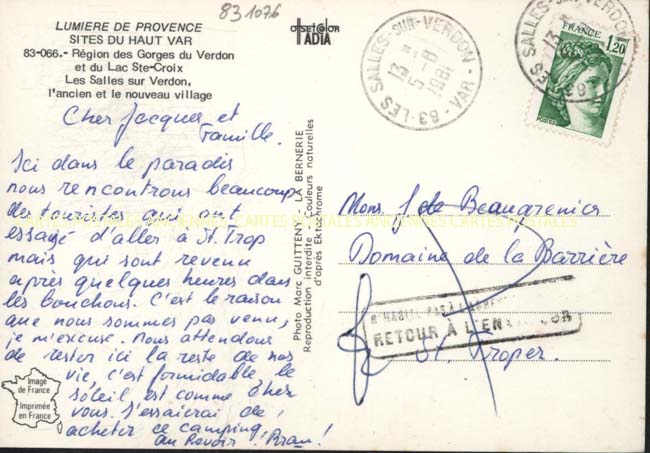 83 1076
LUMIERE DE PROVENCE
SITES DU HAUT VAR
83-066.- Région des Gorges du Verdon
et du Lac Ste-Croix
Les Salles sur Verdon,
l'ancien et le nouveau village
offset color
ADIA
83·LES SALLES-SUR-VERDON - VAR -
13 H
5 - 8
1981
FRANCE
1,20
POSTES
LES SALLES-SUR-VERDON
13
83
Cher Jacques et
Famille.
Ici dans le paradis
nous rencontrons beaucoup
des touristes qui ont
essayé d'aller à St. Trop
mais qui sont revenu
après quelques heures dans
les bouchons. C'est le raison
que nous sommes pas venu,
je m'excuse. Nous attendons
de rester ici la reste de nos
vie, c'est formidable le
soleil est comme cher
vous. J'essaierai de
acheter ce camping,
au Revoir! Bram!
Image
de France
Imprimée
en France
Photo Marc GUITTENY - LA BERNERIE
Reproduction interdite - Couleurs naturelles
d'après Ektachrome
Mons. J de Beaugrenier
Domaine de la Barrière
N'HABITE PAS À L'ADRESSE
RETOUR À L'ENVOYEUR
St. Troper.
CARTES POSTALES ANCIENNES CARTES POSTALES